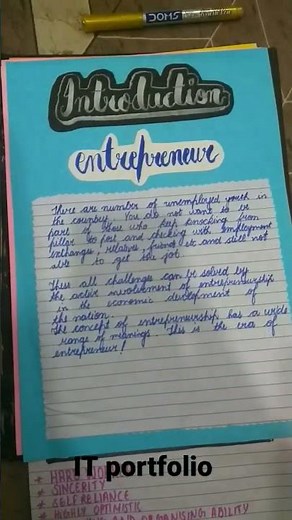 DOMS
Introduction
entrepreneur
There are number of unemployed youth in
the country. You do not want to be
part of those who keep knocking from
piller to post and checking with employment
exchanges, relatives, friends etc and still not
able to get the job.
Thus all challenges can be solved by
the active involvement of entrepreneurship
in the economic development of
the nation.
The concept of entrepreneurship has a wide
range of meanings. This is the era of
entrepreneur!
IT portfolio
* HARD
* SINCERITY
* SELF RELIANCE
* HIGHLY OPTIMISTIC
AND ORGANISING ABILITY